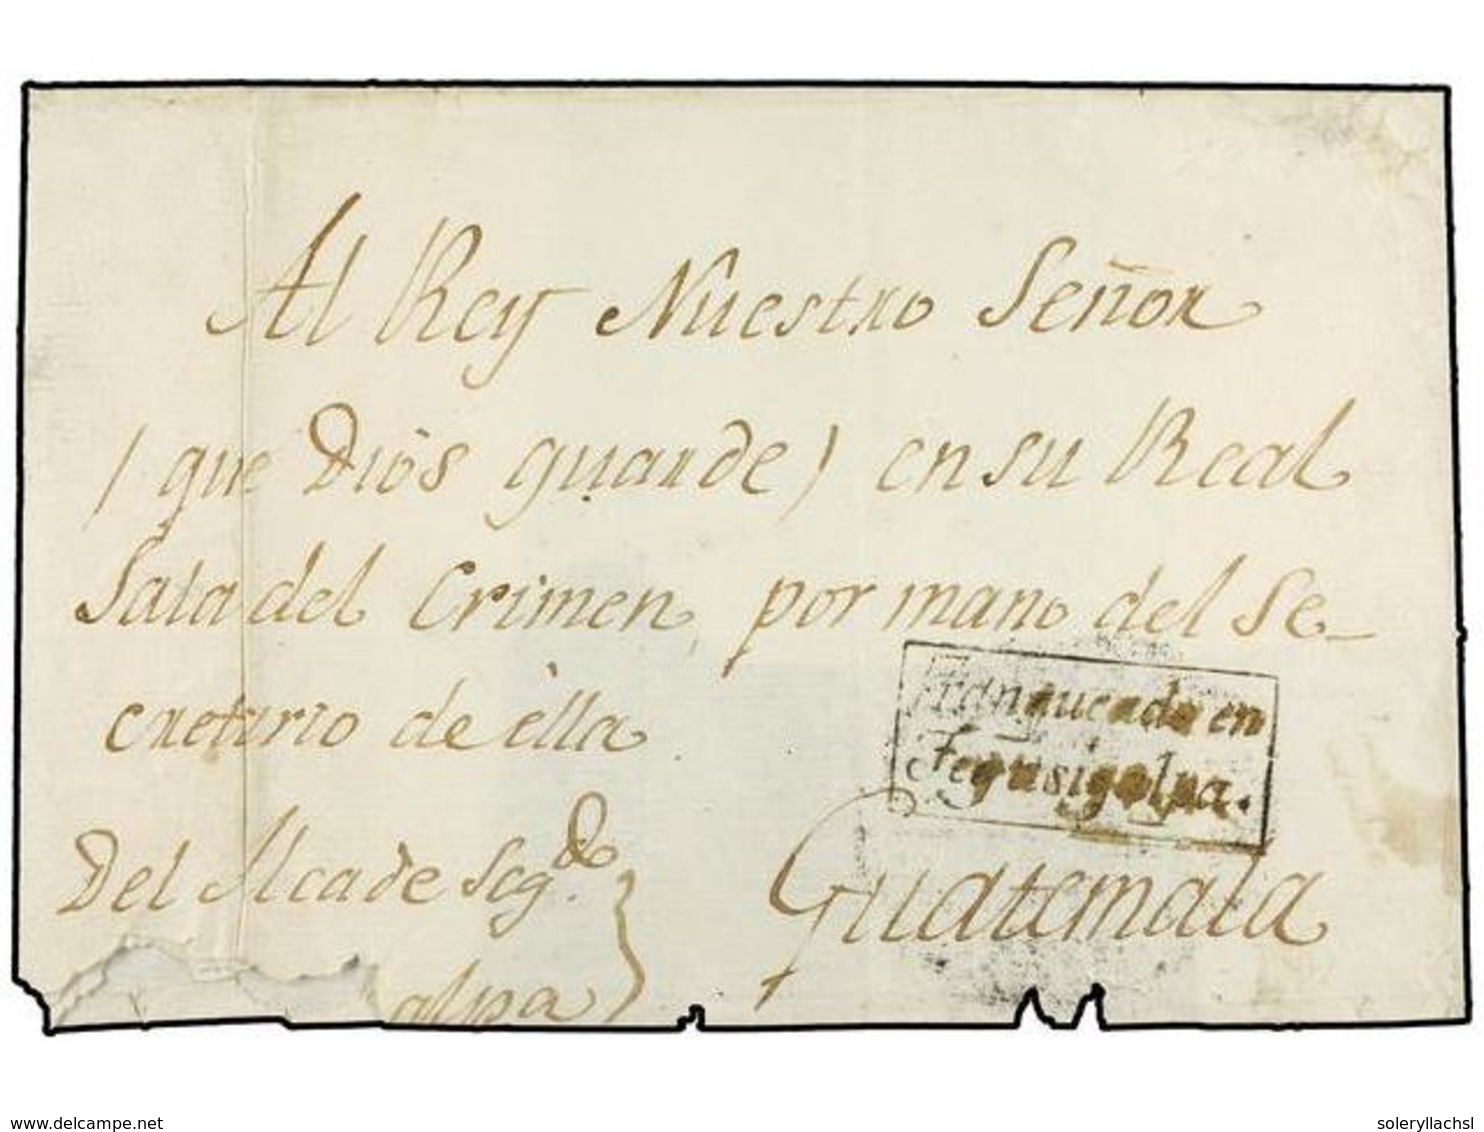 Al Rey Nuestro Señor
(que Dios guarde) en su Real
Sala del Crimen, por mano del Se-
cretario de ella
Franqueado en
Tegusigalpa.
Del Alcade Seg.do
alpa
Guatemala
www.delcampe.net
soleryllachsl